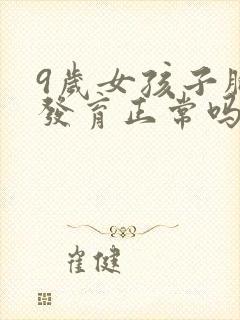 9歲女孩子胸
發育正常嗎
崔健